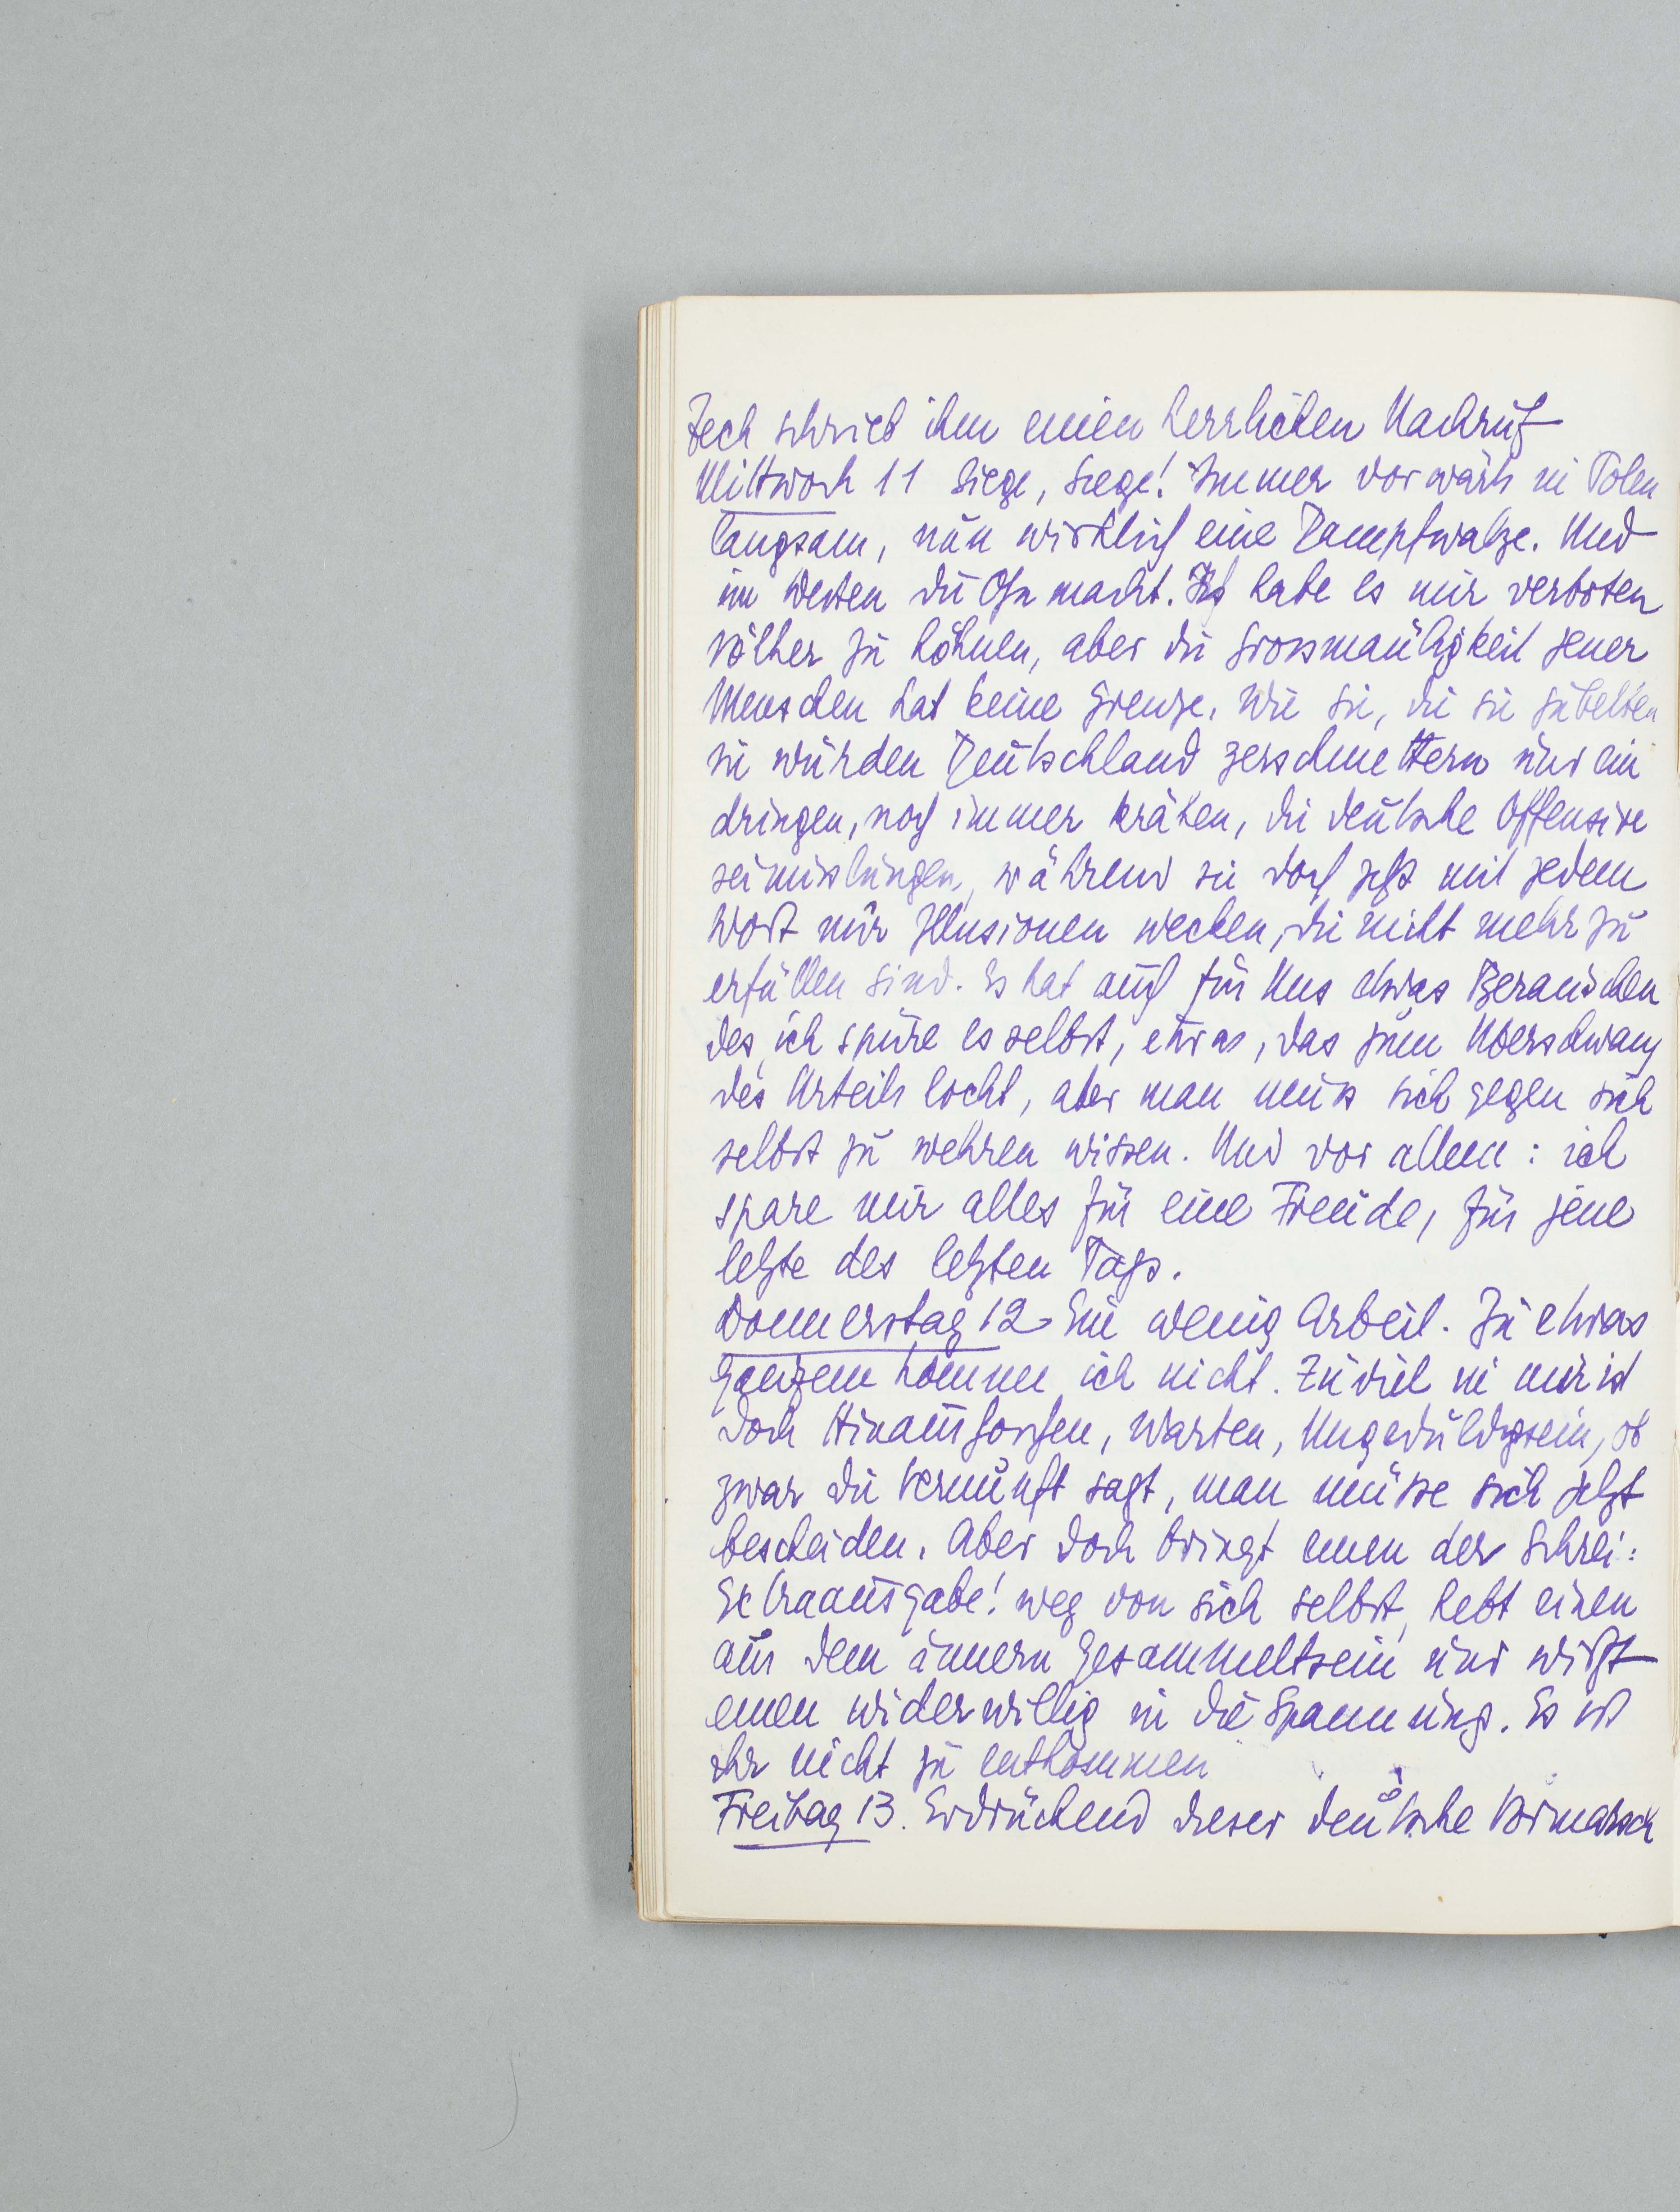 Zech schrieb ihm einen herrlichen Nachruf
Mittwoch 11 Siege, Siege! Immer vorwärts in Polen
langsam, nun wirklich eine Dampfwalze. Und
im Westen die Ohnmacht. Ich habe es mir verboten
Völker zu höhnen, aber die Grossmäuligkeit jener
Menschen hat keine Grenze. Wie sie, die sie jubelten
sie würden Deutschland zerschmettern und ein
dringen, noch immer krähen, die deutsche Offensive
sei misslungen, während sie doch jetzt mit jedem
Wort nur Illusionen wecken, die nicht mehr zu
erfüllen sind. Es hat auch für uns etwas Berauschen
des, ich spüre es selbst, etwas, das zum Überschwang
des Urteils lockt, aber man muss sich gegen sich
selbst zu wehren wissen. Und vor allem: ich
spare mir alles für eine Freude, für jene
letzte des letzten Tags.
Donnerstag 12 Ein wenig Arbeit. Zu etwas
ganzem komme ich nicht. Zuviel in mir ist
doch Hinaushorchen, Warten, Ungeduldigsein, ob
zwar die Vernunft sagt, man müsse sich jetzt
bescheiden. Aber doch bringt einen der Schrei:
Extraausgabe! weg von sich selbst, hebt einen
aus dem innern Gesammeltsein und wirft
einen widerwillig in die Spannung. Es ist
ihr nicht zu entkommen
Freitag 13. Erdrückend dieser deutsche Vormarsch